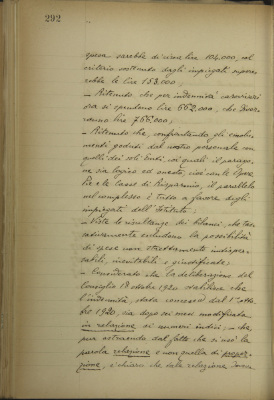 292
queva - sarebbe di circa lire 104.000, col
criterio sostenuto dagli impiegati supere-
rebbe le lire 153.000;
- Ritenuto che per indennità caroviveri
ora si spendono lire 662.000, che
ranno lire 766.000;
- Ritenuto che, confrontando gli emolu-
menti goduti dal nostro personale con
quelli dei soli Enti, coi quali il parago-
ne sia logico ed onesto, cioè con le Opere
Pie e le Casse di Risparmio, il parallelo
nel complesso è tutto a favore degli
impiegati dell'Istituto;
- Viste le risultanze dei bilanci, che tas-
sativamente escludono la possibilità
di spese non strettamente indispen-
sabili, inevitabili e giustificate;
- Considerato che la deliberazione del
Consiglio 18 ottobre 1920 stabiliva che
l'indennità, stata concessa dal 1° otto-
bre 1920, sia dopo sei mesi modificata
in relazione ai numeri indici, - che
pur ostruendo dal fatto che si usò la
parola relazione e non quella di propor-
zione, è chiaro che tale relazione